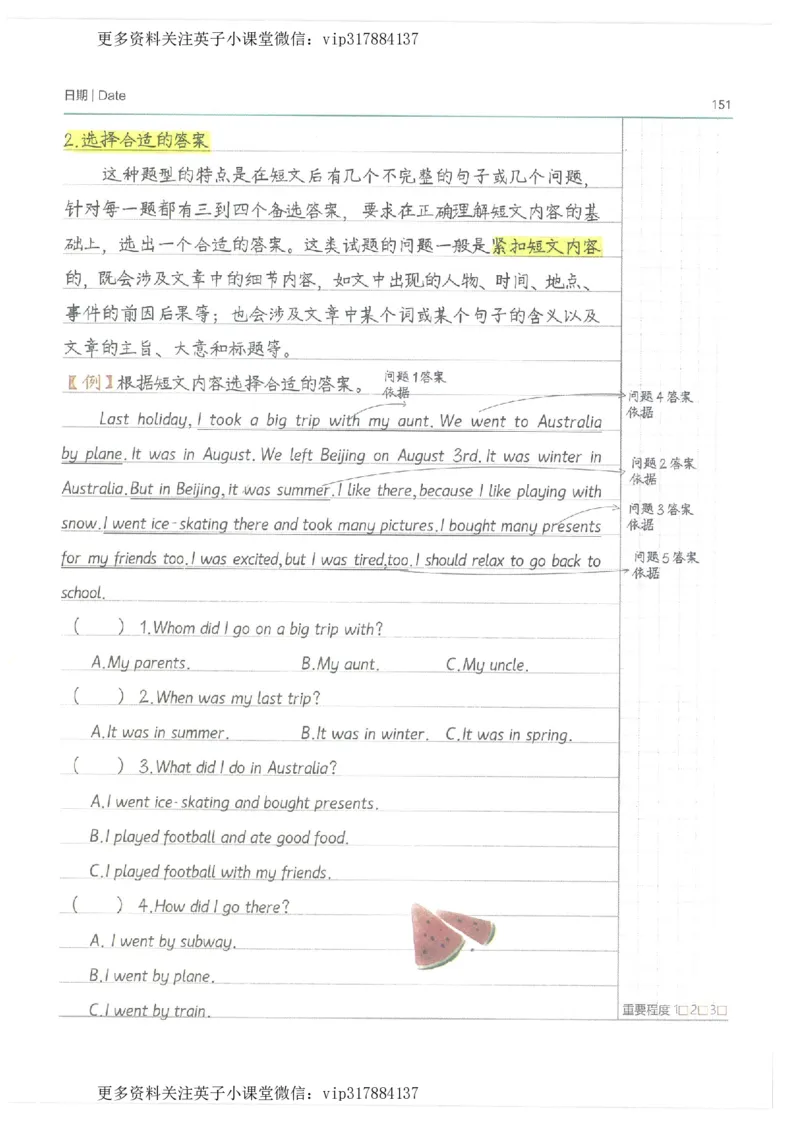 更多资料关注英子小课堂微信：vip317884137
日期 | Date
151
2.选择合适的答案
这种题型的特点是在短文后有几个不完整的句子或几个问题，
针对每一题都有三到四个备选答案，要求在正确理解短文内容的基
础上，选出一个合适的答案。这类试题的问题一般是紧扣短文内容
的，既会涉及文章中的细节内容，如文中出现的人物、时间、地点、
事件的前因后果等；也会涉及文章中某个词或某个句子的含义以及
文章的主旨、大意和标题等。
【例】根据短文内容选择合适的答案。
问题1答案
依据
Last holiday, I took a big trip with my aunt. We went to Australia
问题4答案
依据
by plane. It was in August. We left Beijing on August 3rd. It was winter in
问题2答案
依据
Australia. But in Beijing, it was summer. I like there, because I like playing with
snow. I went ice-skating there and took many pictures. I bought many presents
问题3答案
依据
for my friends too. I was excited, but I was tired, too. I should relax to go back to
问题5答案
依据
school.
(    ) 1. Whom did I go on a big trip with?
A. My parents.    B. My aunt.    C. My uncle.
(    ) 2. When was my last trip?
A. It was in summer.    B. It was in winter.    C. It was in spring.
(    ) 3. What did I do in Australia?
A. I went ice-skating and bought presents.
B. I played football and ate good food.
C. I played football with my friends.
(    ) 4. How did I go there?
A. I went by subway.
B. I went by plane.
C. I went by train.
重要程度 1□2□3□
更多资料关注英子小课堂微信：vip317884137